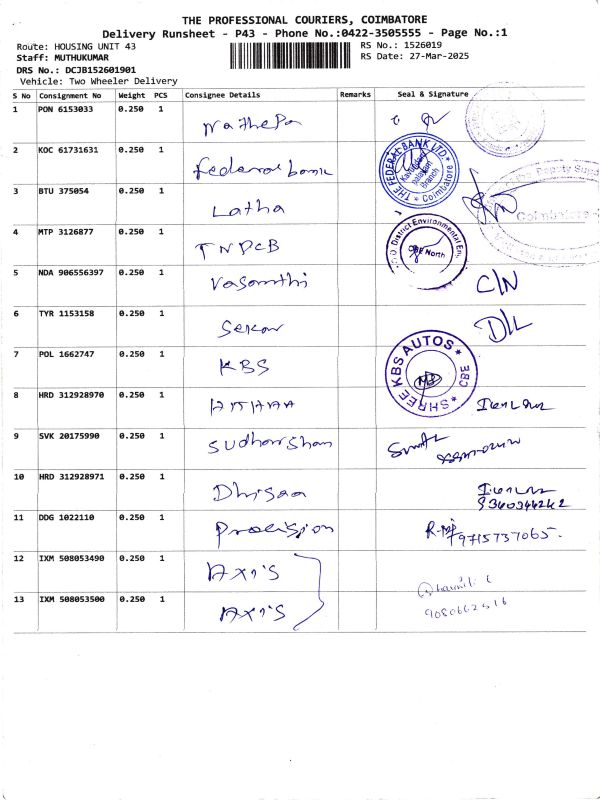 THE PROFESSIONAL COURIERS, COIMBATORE
Delivery Runsheet - P43 - Phone No.:0422-3505555 - Page No.:1
Route: HOUSING UNIT 43
RS No.: 1526019
Staff: MUTHUKUMAR
RS Date: 27-Mar-2025
DRS No.: DCJB152601901
Vehicle: Two Wheeler Delivery
S No Consignment No Weight PCS Consignee Details Remarks Seal & Signature
1 PON 6153033 0.250 1
2 KOC 61731631 0.250 1 federal bank
THE FEDERAL BANK LTD. Branch Coimbatore
3 BTU 375054 0.250 1 Latha
Deputy
Coimbatore
4 MTP 3126877 0.250 1 TNPCB
District Environmental
CBE North
5 NDA 906556397 0.250 1 Vasanthi C/N
6 TYR 1153158 0.250 1 Sekar D/L
7 POL 1662747 0.250 1 KBS
SHREE KBS AUTOS CBE
8 HRD 312928970 0.250 1
9 SVK 20175990 0.250 1 Sudharshan
10 HRD 312928971 0.250 1
9360344242
11 DDG 1022110 0.250 1 Precision
9715737065.
12 IXM 508053490 0.250 1 AXIS
13 IXM 508053500 0.250 1 AXIS
9080662516